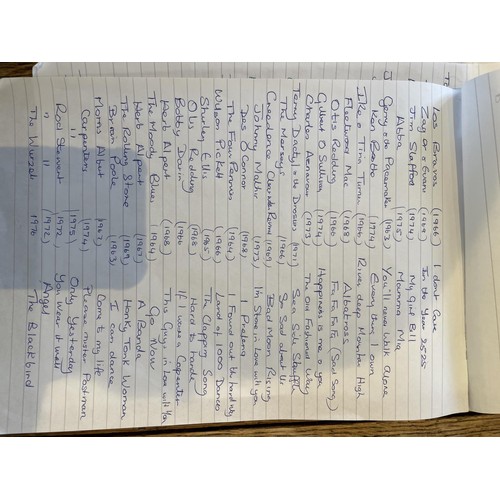 Los Bravos (1966) I dont Care
Zager & Evans (1969) In the Year 2525
Jim Stafford (1974) My Girl Bill
Abba (1975) Mamma Mia
Gerry & Pacemaker (1963) You'll never walk Alone
Ken Boothe (1974) Everything I own
Ike & Tina Turner (1966) River deep Mountain High
Fleetwood Mac (1968) Albatross
Otis Redding (1966) Fa Fa Fa Fa (Sad Song)
Gilbert O Sullivan (1974) Happiness is me & you
Charles Aznavour (1973) The Old Fashion & Way
Terry Dactyl & the Dinosaurs (1971) Sea Side Shuffle
The Merseys (1966) So Sad about Us
Creedence Clearwater Revival (1969) Bad Moon Rising
Johnny Mathis (1973) I'm Stone in Love with you
Des O'Connor (1968) I Pretend
The Four Pennies (1964) I Found out the hard way
Wilson Pickett (1966) Land of 1000 Dances
Shirley Ellis (1965) The Clapping Song
Otis Redding (1968) Hard to handle
Bobby Darin (1966) If I were a Carpenter
Herb Alpert (1968) This Guy's in Love with you
The Moody Blues (1964) Go Now
Herb Alpert (1967) A Banda
The Rolling Stone (1969) Honky Tonk Woman
Brian Poole (1963) I can dance
Morris Albert
Carpenters (1974) Please mister Postman
" " (1975) Only Yesterday
Rod Stewart (1972) You wear it well
" " (1972) Angel
The Wurzels 1976 The Blackbird